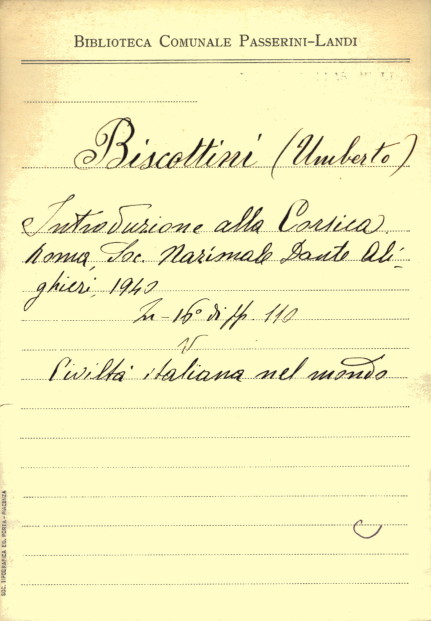 BIBLIOTECA COMUNALE PASSERINI-LANDI
Biscottini (Umberto)
Introduzione alla Corsica.
Roma, Soc. Nazionale Dante Ali-
ghieri, 1940
In-16° di pp. 110
Civiltà italiana nel mondo
SOC. TIPOGRAFICA ED. PORTA - PIACENZA